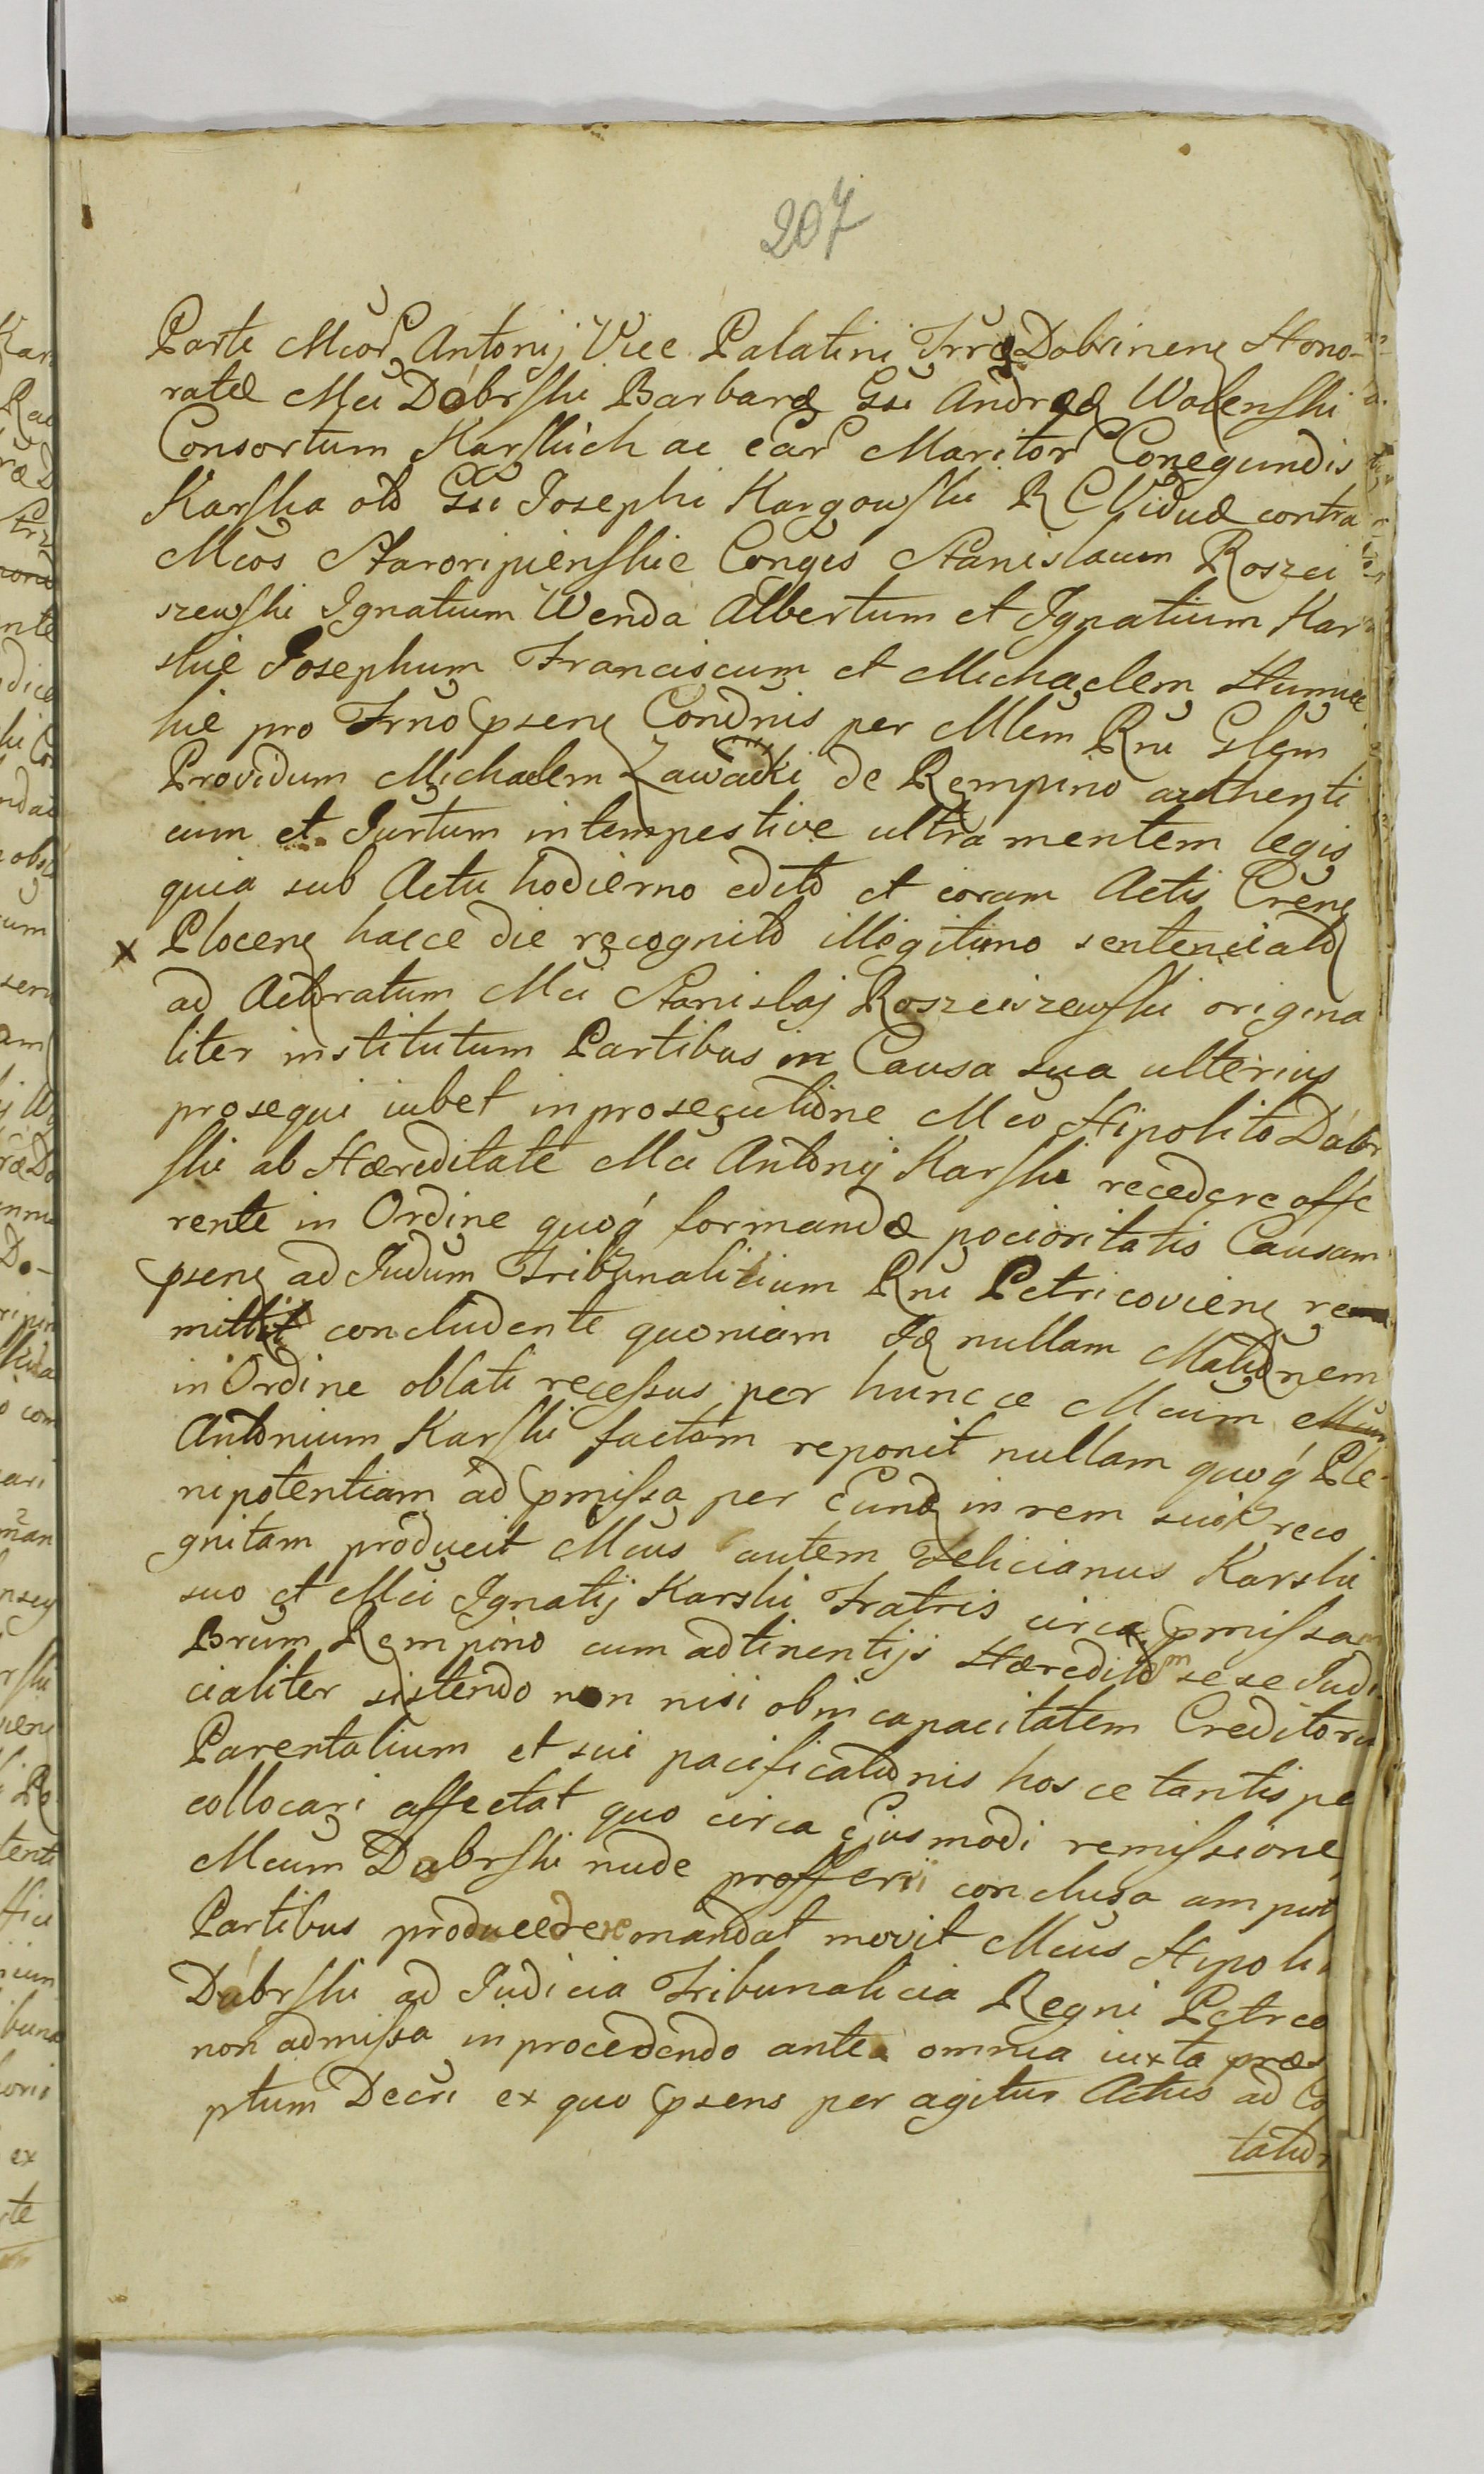 207
Parte Mcor Antonij Vice Palatini Trrę Dobrinenę Hono-
ratæ Mci Dobrski Barbaræ Gsi Andreæ Wolenski
Consortum Karskich ac ear Maritor Conegundis
Karska olo Gsi Josephi Kargowski R C Viduæ contra
Mcos Staroripienskie Conges Stanislaum Roszci
szewski Ignatium Wenda Albertum et Ignatium Kar
skie Josephum Franciscum et Michaelem
kie pro Trno psenę Condnis per Mlem Rni Glem
Providum Michaelem Zawadki de Rempino authenti
cum et Jurtum intempestive ultra mentem legis
quia sub Actu hodierno edito et coram Actis Crenę
x Plocenę hacce die recognito illegitimo sentenciato
ad Actoratum Mci Stanislaj Roszciszewski origina
liter institutum Partibus in Causa sua ulterius
prosequi iubet in prosecutione Mco Hipolito Dabr
ski ab Hæreditate Mci Antonij Karski recedere offe
rente in Ordine quoq́ formandæ pocioritatis Causam
psenę ad Judum Tribunalitium Rni Petricovienę re
mittit concludente quoniam Is nullam Mationem
in Ordine oblati recessus per huncce Mcum
Antonium Karski factam reponit nullam quoq́ Ple
nipotentiam ad pmissa per Eund in rem sui reco
gnitam producit Mcus autem Felicianus Karski
suo et Mci Ignatij Karski Fratris circa pmissam
Brum Rempino cum adtinentijs Hæreditom sese Judi
cialiter sistendo non nisi ob incapacitatem Creditoru
Parentalium et sui pacificationis hosce tantispe
collocari affectat quo circa Eiusmodi remissione
Mcum Dabrski nude profferri conclusa amput
Partibus producedere mandat movit Mcus Hipoli
Dabrski ad Judicia Tribunalicia Regni Petrco
non admissa in procedendo ante omnia iuxta præs
ptum Decri ex quo psens per agitur Actus ad Co
tatio